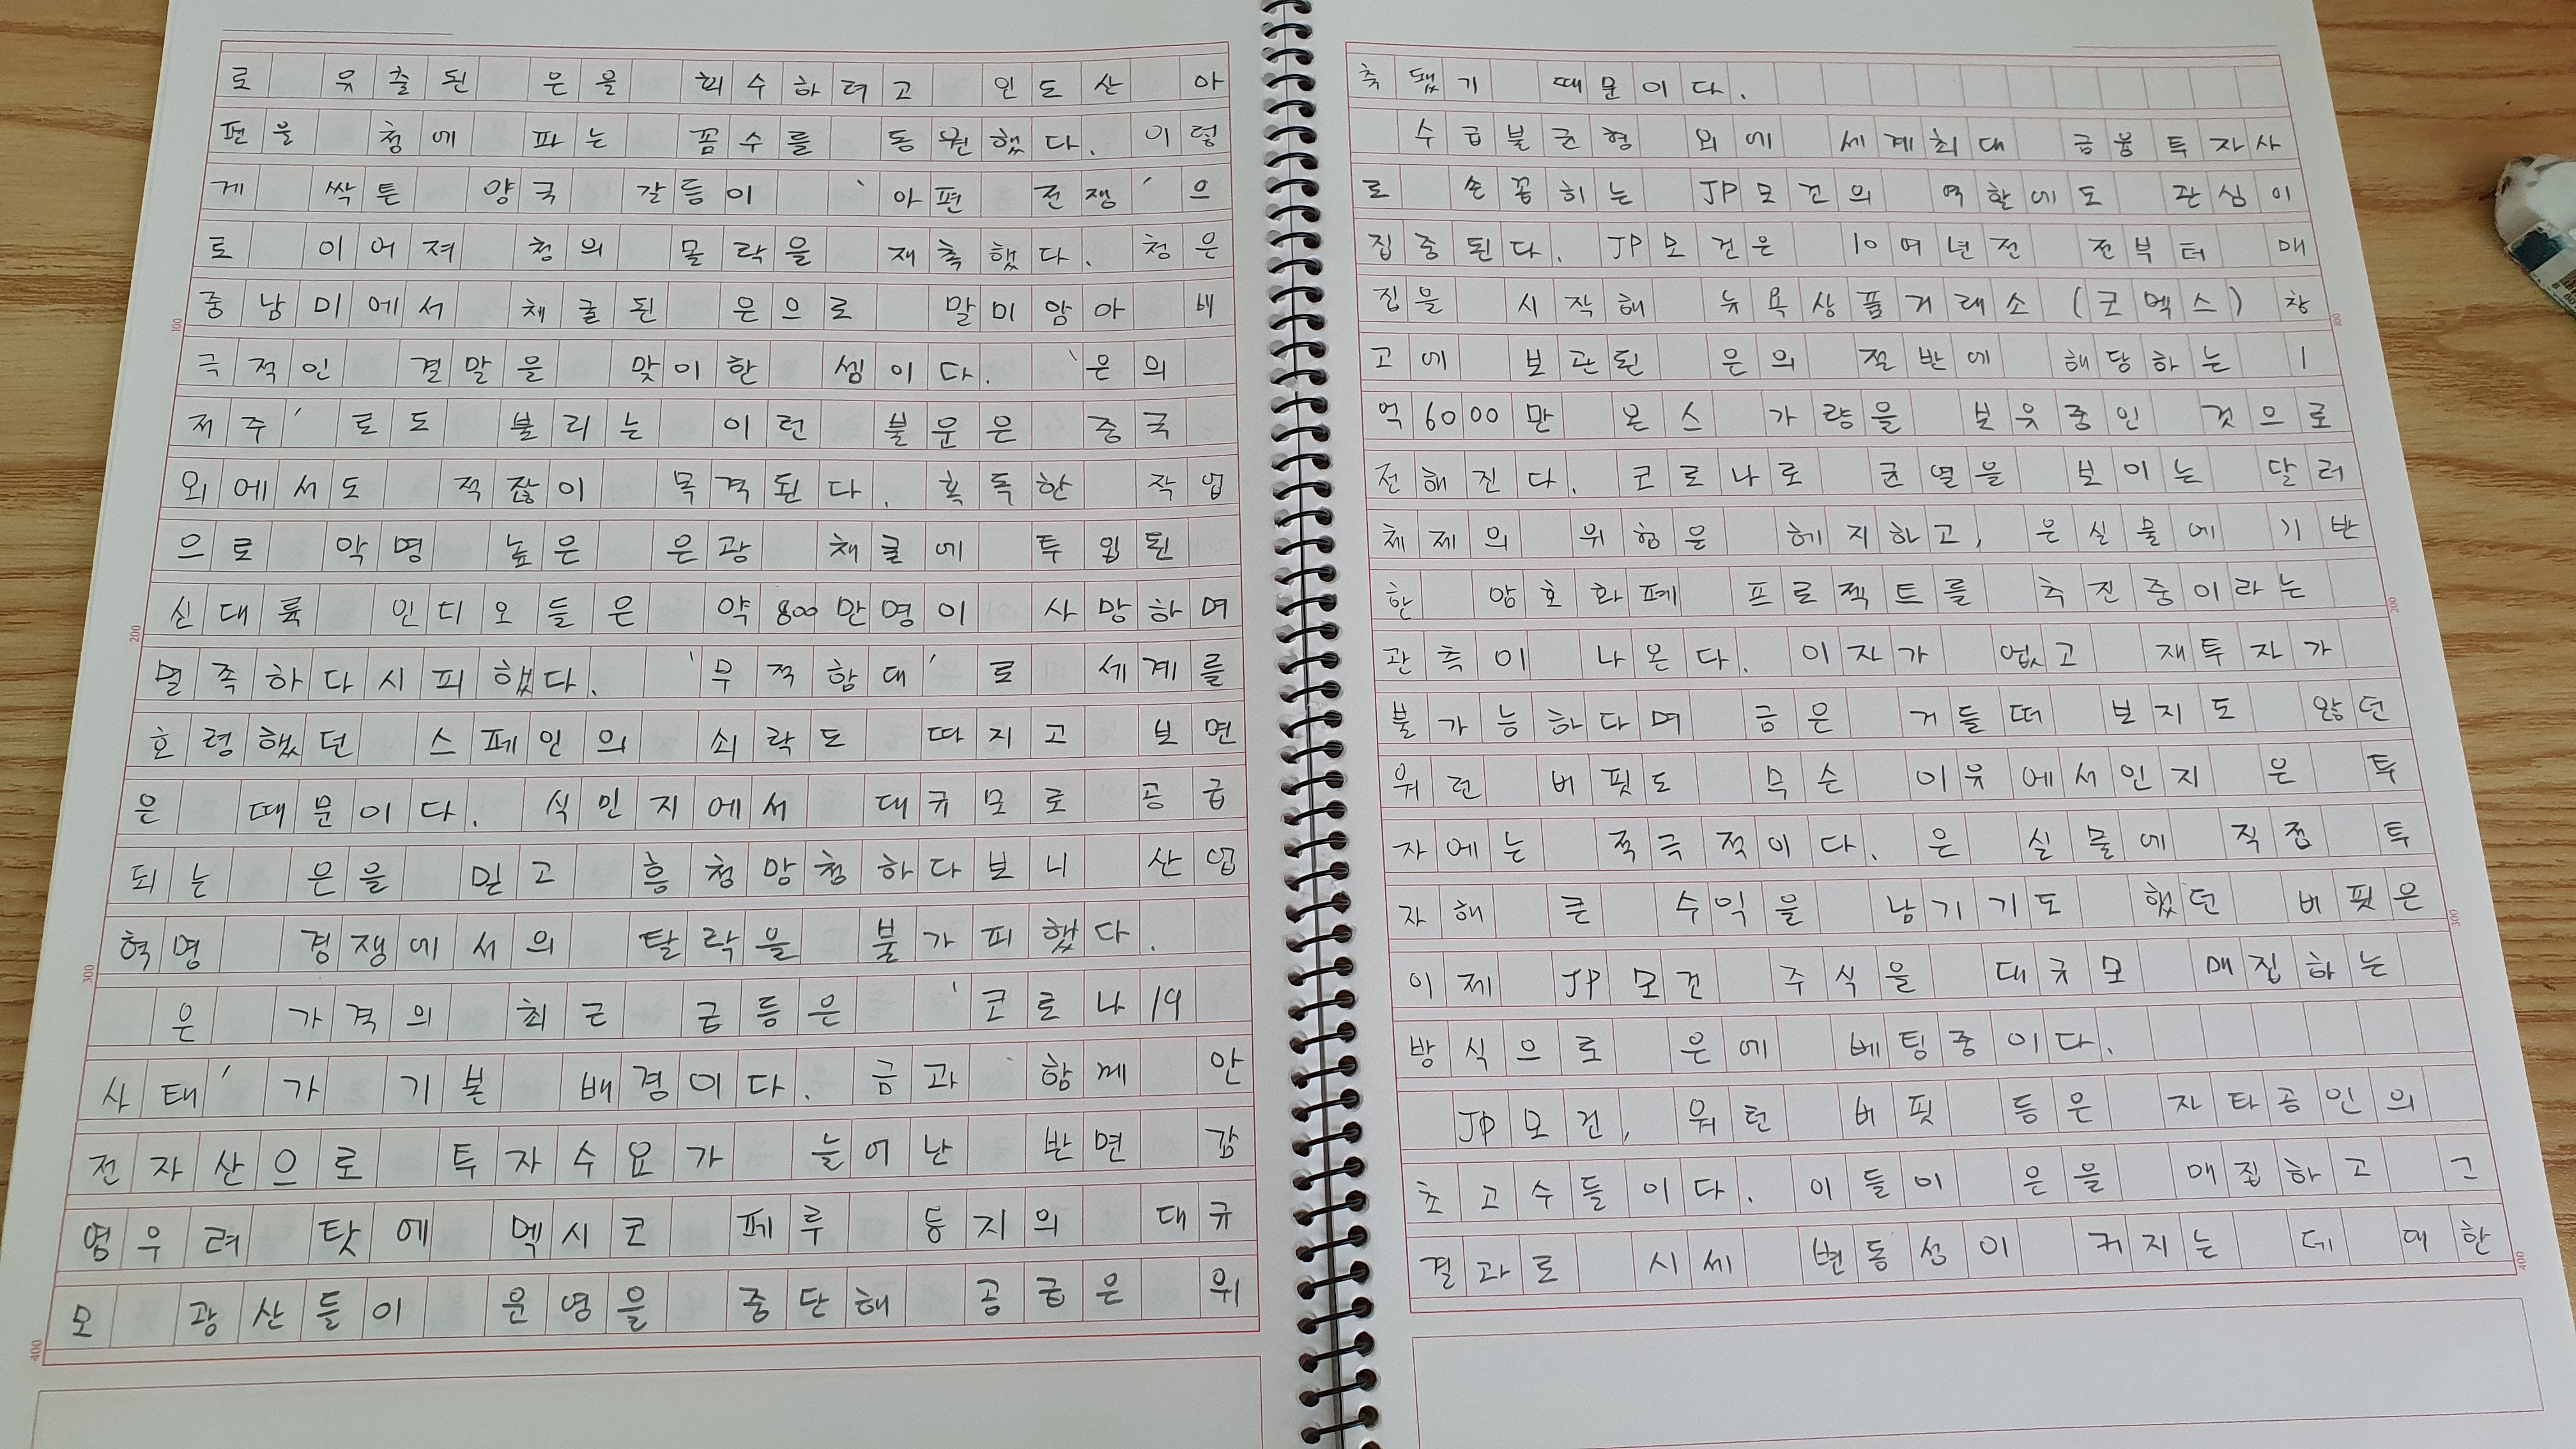 로 유출된 은을 회수하려고 인도산 아
편을 청에 파는 꼼수를 동원했다. 이렇
게 싹튼 양국 갈등이 '아편 전쟁'으
로 이어져 청의 몰락을 재촉했다. 청은
중남미에서 채굴된 은으로 말미암아 비
극적인 결말을 맞이한 셈이다. '은의
저주'로도 불리는 이런 불운은 중국
외에서도 적잖이 목격된다. 혹독한 작업
으로 악명 높은 은광 채굴에 투입된
신대륙 인디오들은 약 800만명이 사망하며
멸족하다시피 했다. '무적함대'로 세계를
호령했던 스페인의 쇠락도 따지고 보면
은 때문이다. 식민지에서 대규모로 공급
되는 은을 믿고 흥청망청하다보니 산업
혁명 경쟁에서의 탈락을 불가피했다.
은 가격의 최근 급등은 '코로나19
사태'가 기본 배경이다. 금과 함께 안
전자산으로 투자수요가 늘어난 반면 감
염우려 탓에 멕시코 페루 등지의 대규
모 광산들이 운영을 중단해 공급은 위
축됐기 때문이다.
수급불균형 외에 세계최대 금융투자사
로 손꼽히는 JP모건의 역할에도 관심이
집중된다. JP모건은 10여년전 전부터 매
집을 시작해 뉴욕상품거래소(코멕스) 창
고에 보관된 은의 절반에 해당하는 1
억6000만 온스 가량을 보유중인 것으로
전해진다. 코로나로 균열을 보이는 달러
체제의 위험은 헤지하고, 은실물에 기반
한 암호화폐 프로젝트를 추진중이라는
관측이 나온다. 이자가 없고 재투자가
불가능하다며 금은 거들떠 보지도 않던
워런 버핏도 무슨 이유에서인지 은 투
자에는 적극적이다. 은 실물에 직접 투
자해 큰 수익을 남기기도 했던 버핏은
이제 JP모건 주식을 대규모 매집하는
방식으로 은에 베팅중이다.
JP모건, 워런 버핏 등은 자타공인의
초고수들이다. 이들이 은을 매집하고 그
결과로 시세 변동성이 커지는 데 대한